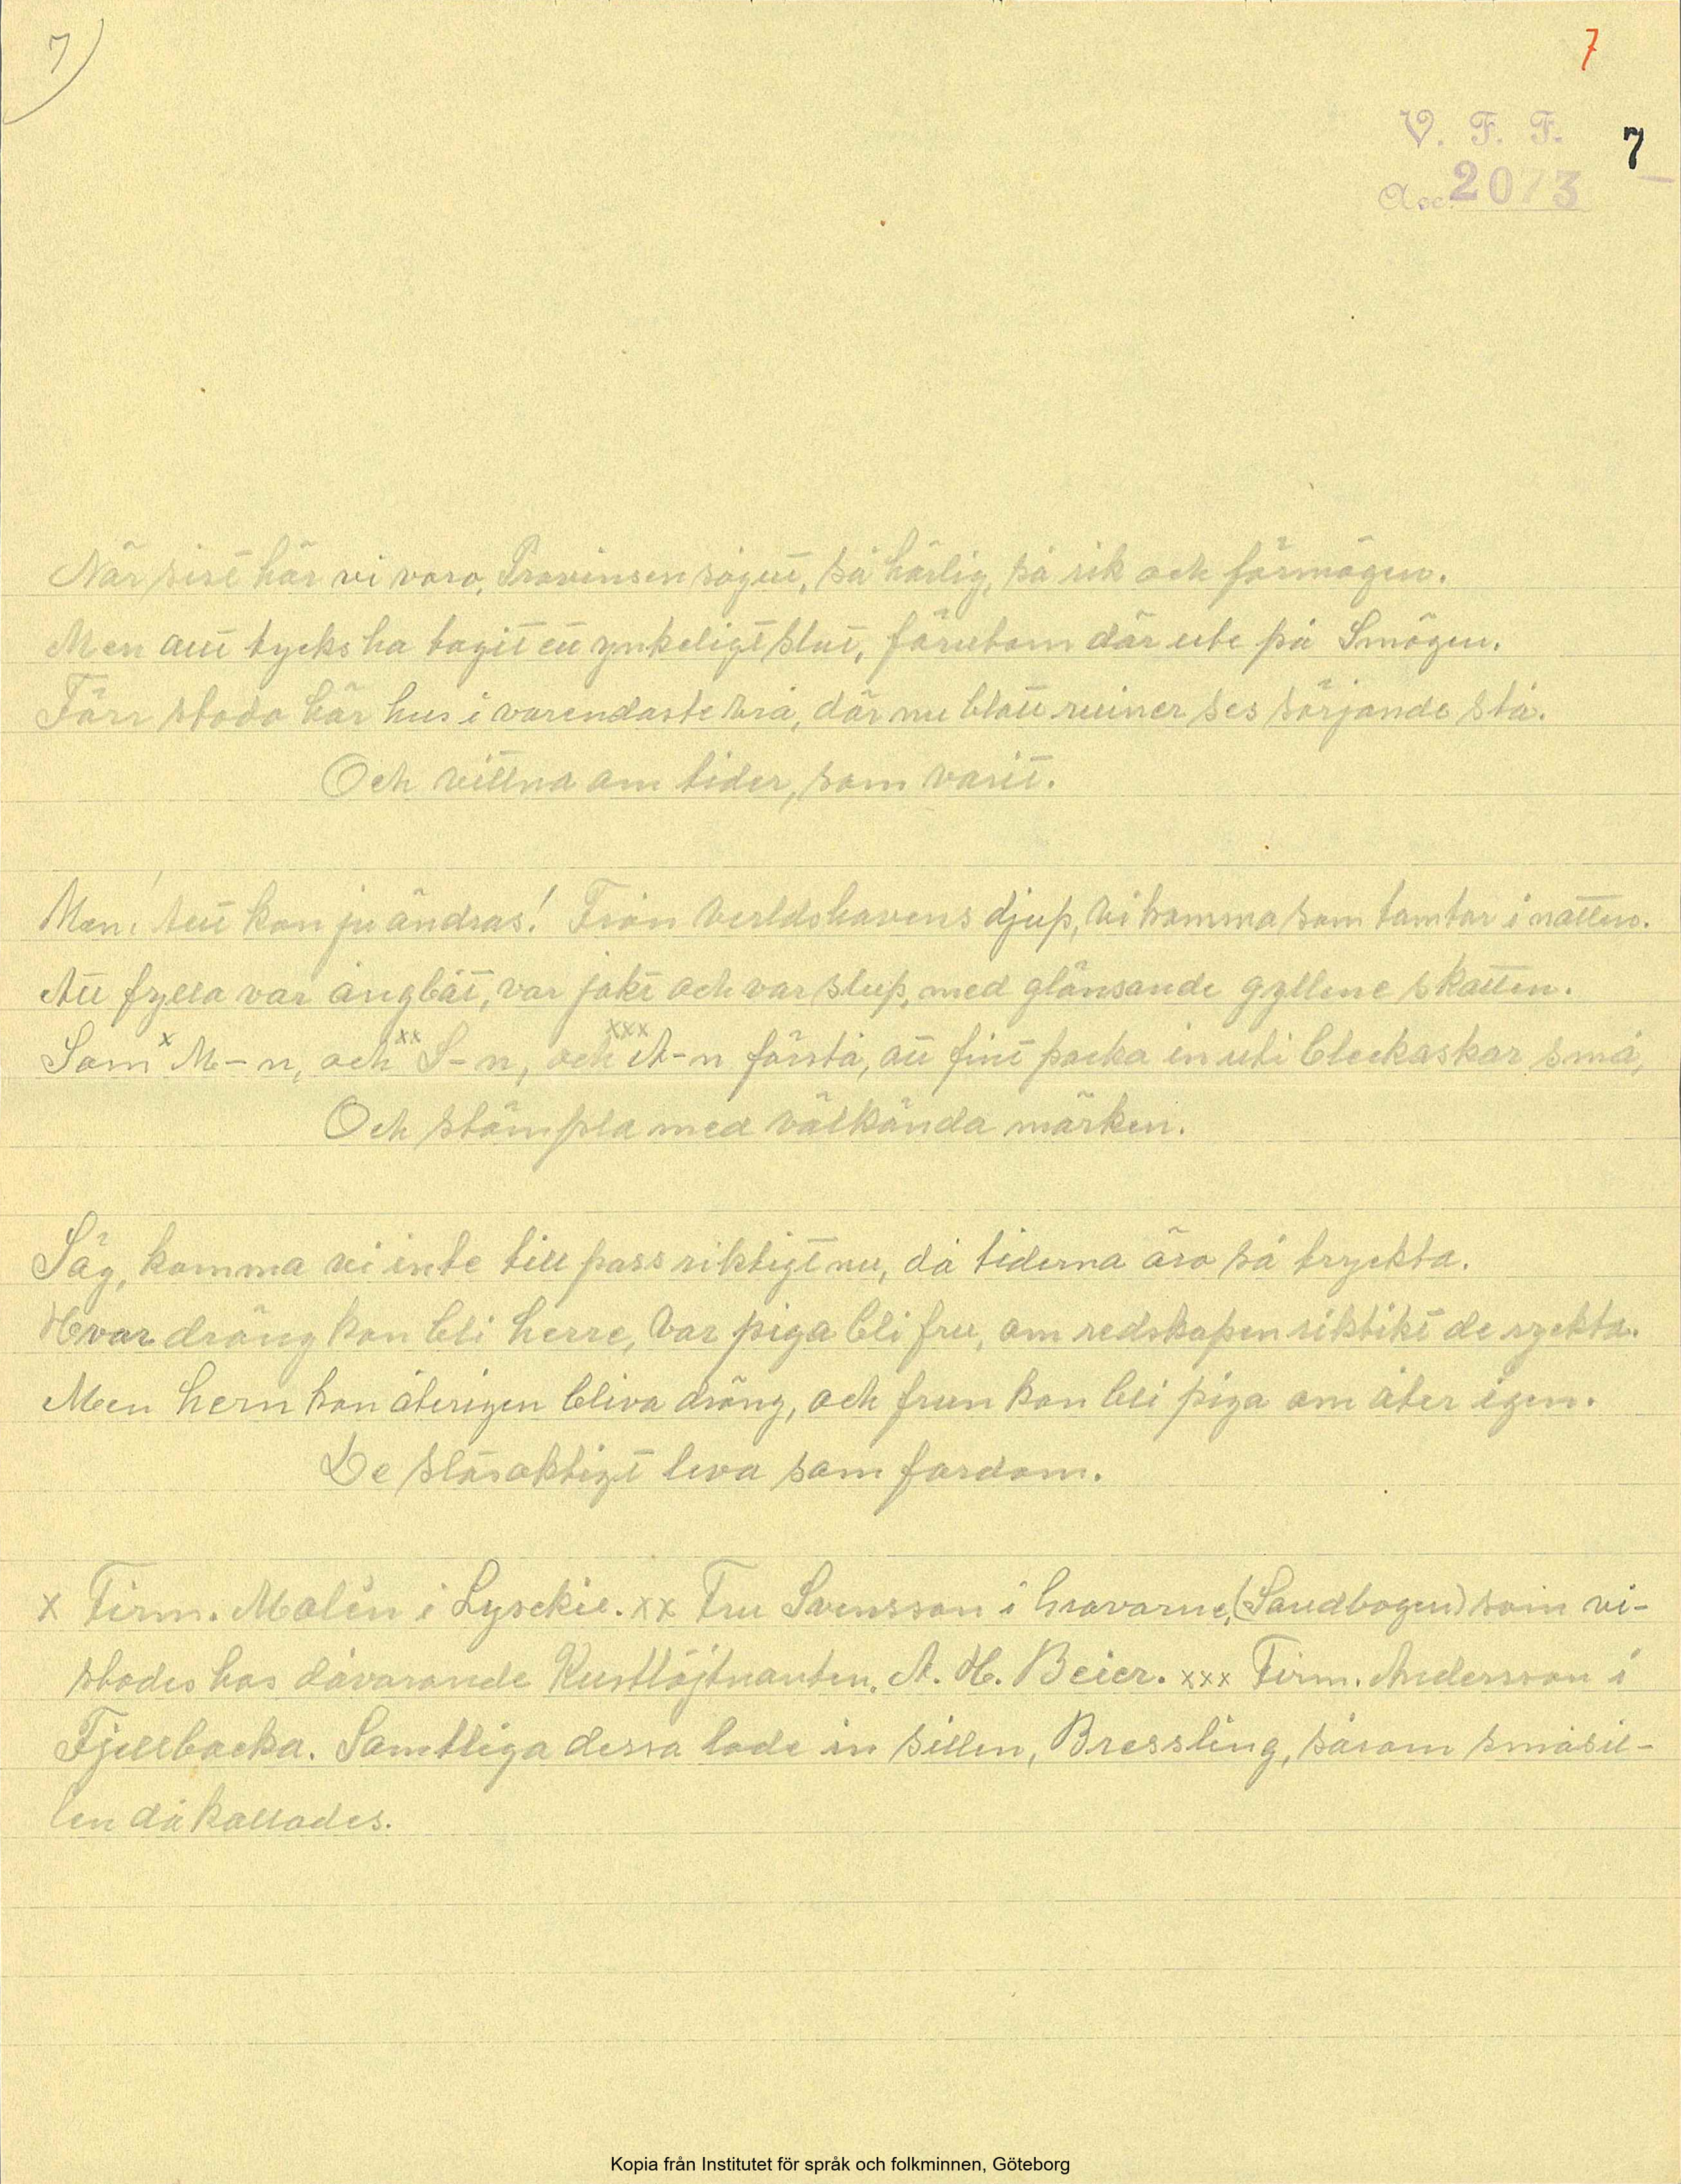 7)
7
V. F. F. 7
Acc. 2073
När sist här vi voro, Provinsen sågut, så härlig, så rik och förmögen.
Men allt tycks ha tagit ett ynkeligt slut, förutom där ute på Smögen.
Förr stodo här hus i varendaste vrå, där nu blott ruiner ses sörjande stå.
Och vittna om tider, som varit.
Men! Allt kan ju ändras! Från Verldshavens djup, vi komma som tomtar i natten.
Att fylla var ångbåt, var jakt och var slup, med glänsande gyllene skatten.
Som x M-n, och xx S-n, och xxx A-n förstå, att fint packa in uti bleckaskar små,
Och stämpla med välkända märken.
Säg, komma vi inte till pass riktigt nu, då tiderna äro så tryckta.
Hvar dräng kan bli herre, Var piga bli fru, om redskapen riktikt de ryckta.
Men hern kan återigen bliva dräng, och frun kan bli piga om åter igen.
De slösaktigt leva som fordom.
x Firm. Malén i Lysekil. xx Fru Svensson i Gravarne, (Sandbogen) som vi-
stades hos dåvarande Kustlöjtnanten, A. H. Beier. xxx Firm. Andersson i
Fjellbacka. Samtliga dessa lade in sillen, Bressling, såsom småsil-
len då kallades.
Kopia från Institutet för språk och folkminnen, Göteborg